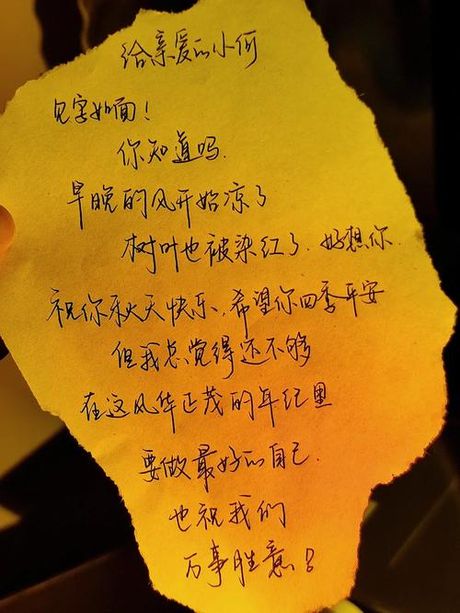 给亲爱的小何
见字如面！
你知道吗.
早晚的风开始凉了
树叶也被染红了.好想你.
祝你秋天快乐、希望你四季平安
但我总觉得还不够
在这风华正茂的年纪里
要做最好的自己.
也祝我们
万事胜意！